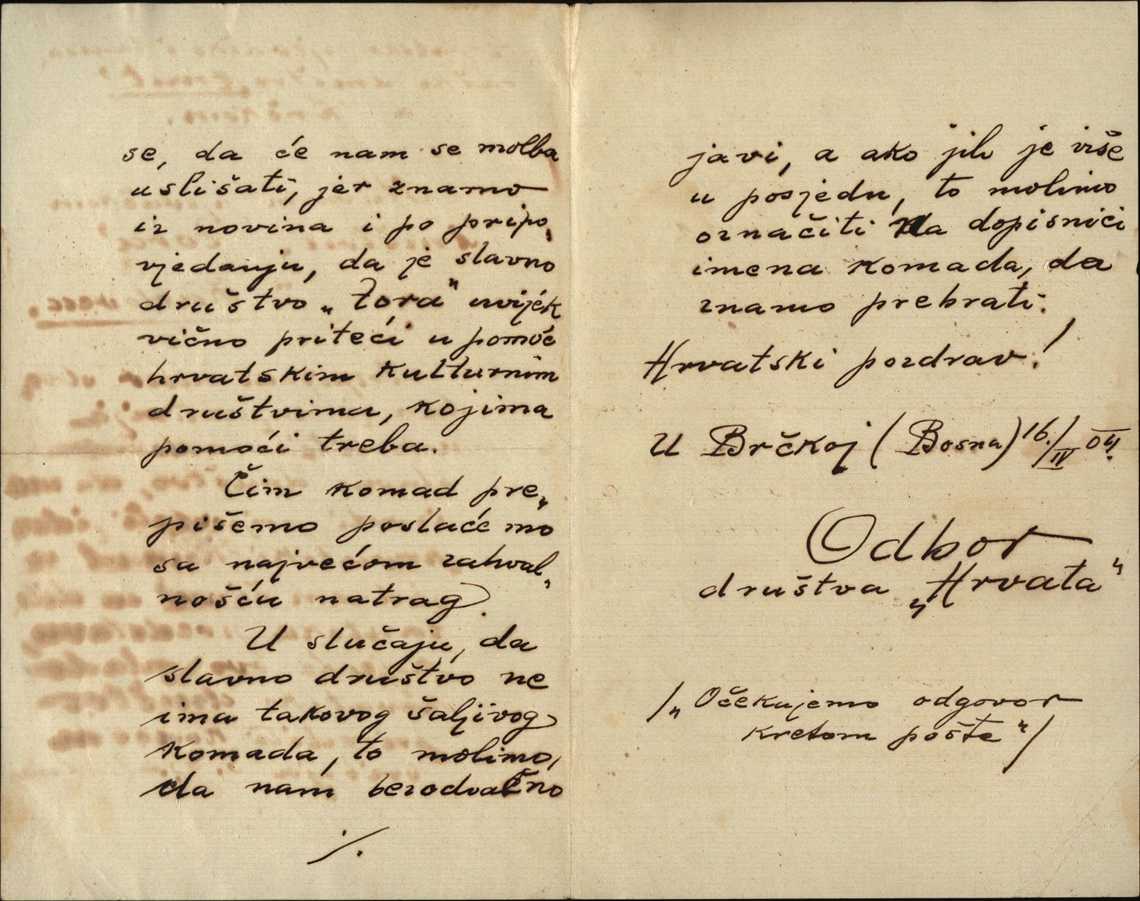 se, da će nam se molba
uslišati, jer znamo
iz novina i po pripo„
vjedanju, da je slavno
društvo „Zora" uvijek
vično priteći u pomoć
hrvatskim kulturnim
društvima, kojima
pomoći treba.
Čim komad pre„
pišemo poslaće mo
sa najvećom zahval„
nošću natrag.
U slučaju, da
slavno društvo ne
ima takovog šaljivog
komada, to molimo,
da nam bezodvlačno
./.
javi, a ako jih je više
u posjedu, to molimo
označiti na dopisnici
imena komada, da
znamo prebrati.
Hrvatski pozdrav!
U Brčkoj (Bosna) 16./IV 04.
Odbor
društva „Hrvata"
/„Očekujemo odgovor
kretom pošte"/